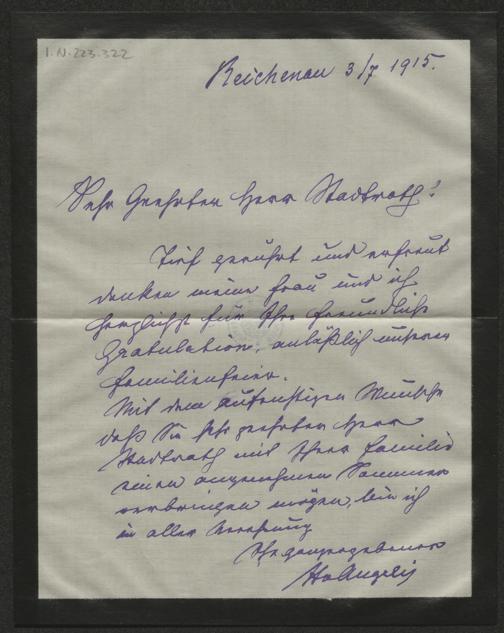 I.N.223.322
Reichenau 3/7 1915.
Sehr Geehrter Herr Stadtrath!
Tief gerührt und erfreut
danken meine Frau und ich
herzlichst für Ihre freundliche
Gratulation, anläßlich unserer
Familienfeier.
Mit dem aufrichtigen Wunsche
daß Sie sehr geehrter Herr
Stadtrath mit Ihrer Familie
einen angenehmen Sommer
verbringen mögen, bin ich
in aller Verehrung
Ihr ganz ergebener
Angeli